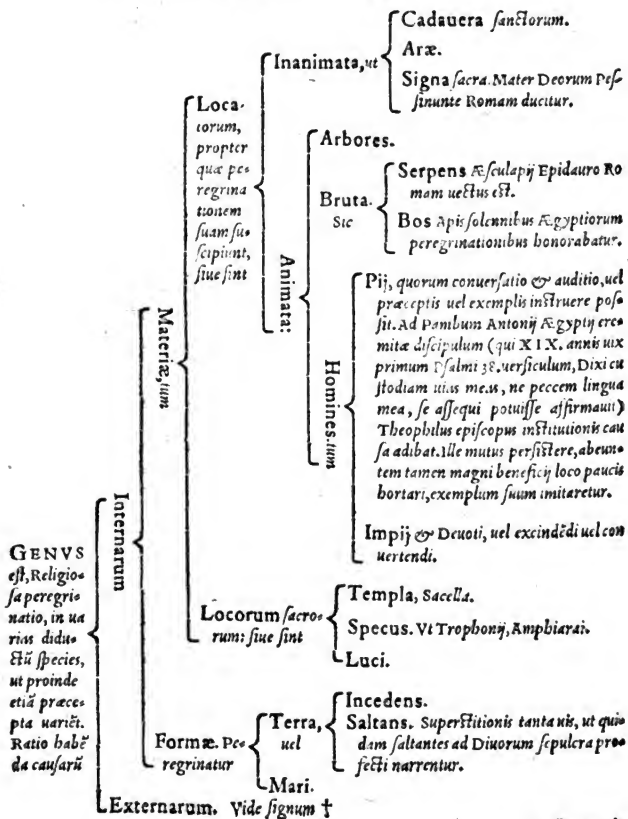 GENVS
eſt, Religio-
ſa peregri-
natio, in ua
rias didu-
ctũ ſpecies,
ut proinde
etiã præce-
pta uariẽt.
Ratio habẽ
da cauſarũ
Internarum
Materiæ, tum
Loca-
torum,
propter
quæ pe-
regrina
tionem
ſuam ſu-
ſcipiunt,
ſiue ſint
Inanimata, ut
Cadauera ſanctorum.
Aræ.
Signa ſacra. Mater Deorum Peſ-
ſinunte Romam ducitur.
Animata:
Arbores.
Bruta.
Sic
Serpens Æſculapij Epidauro Ro
mam uectus eſt.
Bos Apis ſolennibus Ægyptiorum
peregrinationibus honorabatur.
Homines. tum
Pij, quorum conuerſatio & auditio, uel
præceptis uel exemplis inſtruere poſ-
ſit. Ad Pambum Antonij Ægyptij ere-
mitæ diſcipulum (qui XIX. annis uix
primum Pſalmi 38. uerſiculum, Dixi cu
ſtodiam uias meas, ne peccem lingua
mea, ſe aſſequi potuiſſe affirmauit)
Theophilus epiſcopus inſtitutionis cau
ſa adibat. Ille mutus perſiſtere, abeun-
tem tamen magni beneficij loco paucis
hortari, exemplum ſuum imitaretur.
Impij & Deuoti, uel excindẽdi uel con
uertendi.
Locorum ſacro-
rum: ſiue ſint
Templa, Sacella.
Specus. Vt Trophonij, Amphiarai.
Luci.
Formæ. Pe-
regrinatur
Terra,
uel
Incedens.
Saltans. Superſtitionis tanta uis, ut qui-
dam ſaltantes ad Diuorum ſepulcra pro-
fecti narrentur.
Mari.
Externarum. Vide ſignum †